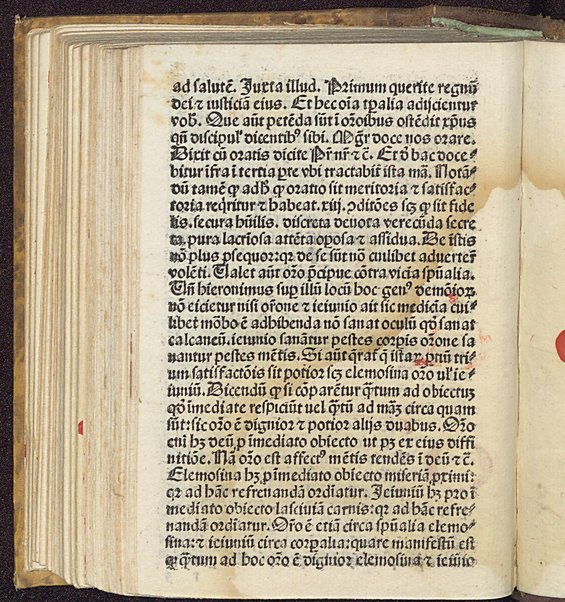 ad salutē. Juxta illud. Primum querite regnū
dei ⁊ iusticiā eius. Et hec oīa tp̄alia adijcientur
vob̄. Que aūt petēda sūt ī orōibus ostēdit xp̄us
qn̄ discipul' dicentibꝰ sibi. Mḡr doce nos orare.
Dixit cū oratis dicite Pr̄ nr̄ ⁊ c̄. Et d̄ hac doce⸗
bitur īfra ī tertia ꝑte vbi tractabit̄ ista mā. Notā⸗
dū tamē ꝙ adh̄ ꝙ oratio sit meritoria ⁊ satisfac⸗
toria req̄ritur ⁊ habeat. xiij. ꝯditōes scꝫ ꝙ sit fide
lis. secura hūilis. discreta deuota verecūda secre
ta. pura lacriosa attēta oꝑosa ⁊ assidua. De istis
nō plus ꝓsequor: qꝛ de se sūt nō cuilibet aduertere
volēti. Valet aūt orō p̄cipue cōtra vicia spūalia.
Un̄ hieronimus suꝑ illū locū hoc genꝰ demōioꝝ
nō eicietur nisi orōne ⁊ ieiunio ait sic medicīa cui⸗
libet mōbo ē adhibenda nō sanat oculū qd̄ sanat
calcaneū. ieiunio sanātur pestes corpis orōne sa
nantur pestes mētis. Si aūt q̄rat̄ q̄ istaꝝ ptiū tri⸗
um satisfactōis sit potior scꝫ elemosina orō ul' ie⸗
iuniū. Dicendū ꝙ si cōparētur q̄tum ad obiectum
qd̄ īmediate respiciūt uel q̄tū ad mām circa quam
sūt: sic orō ē dignior ⁊ potior alijs duabus. Orō
eni hꝫ deū ꝓ īmediato obiecto ut pꝫ ex eius diffi
nitiōe. Nā orō est affectꝰ mētis tendēs ī deū ⁊ c̄.
Elemosina hꝫ ꝓ īmediato obiecto miseriā ꝓximi:
qꝛ ad hāc refrenandā ordīatur. Jeiuniū hꝫ pro ī
mediato obiecto lasciuiā carnis: qꝛ ad hāc refre⸗
nandā ordīatur. Orō ē etiā circa spūalia elemo⸗
sina: ⁊ ieiuniū circa corꝑalia: quare manifestū est
ꝙ q̄tum ad hoc orō ē dignior elemosina ⁊ ieiūio